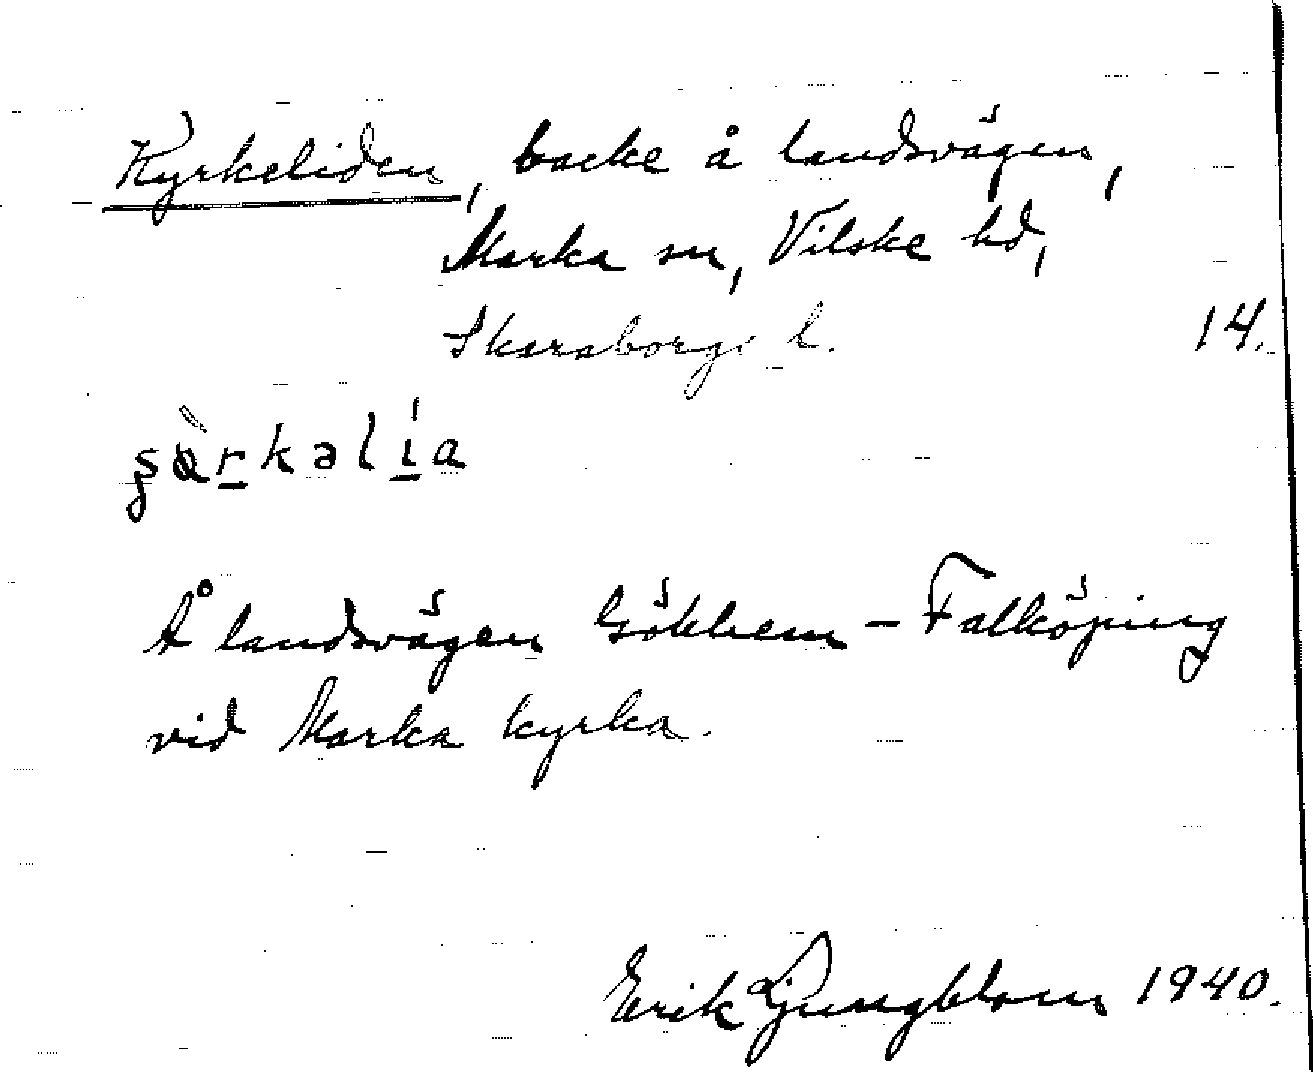 Kyrkeliden, backe å landsvägen,
Marka sn, Vilske hd,
Skaraborgs l. 14.
Å landsvägen Gökhem – Falköping
vid Marka kyrka.
Erik Ljungblom 1940.